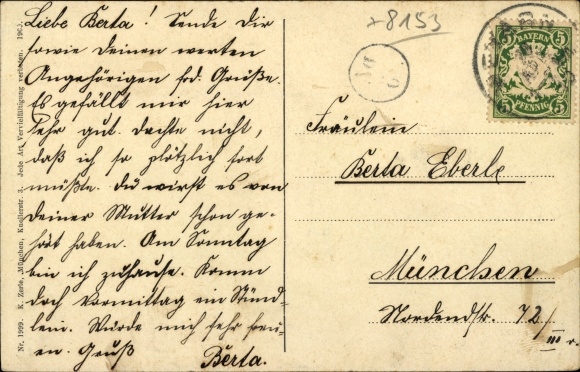 Liebe Berta! Sende Dir
sowie Deinen werten
Angehörigen frd. Grüße.
Es gefällt mir hier
sehr gut. Dachte nicht,
daß ich so plötzlich fort
müßte. Du wirst es von
Deiner Mutter schon ge-
hört haben. Am Sonntag
bin ich zuhause. Komm
doch Vormittag ein Stünd-
lein. Würde mich sehr freu-
en. Gruß
Berta.
Nr. 1999. K. Zerle, München, Knollerstr. 3. Jede Art Vervielfältigung verboten.
+8153
5 BAYERN 5
5 PFENNIG 5
Fräulein
Berta Eberle
München
Nordendstr. 72/
III r.